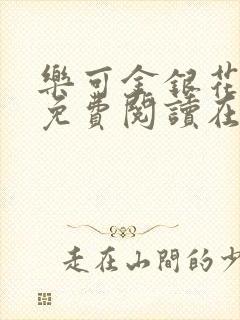 樂可金銀花
免費閱讀在
走在山間的少